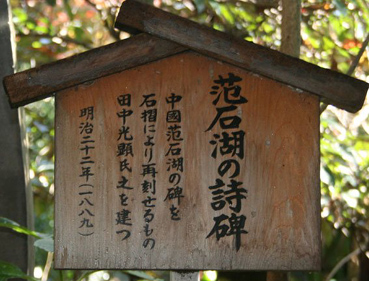 范石湖の詩碑
中國范石湖の碑を
石摺により再刻せるもの
田中光顕氏之を建つ
明治二十二年(一八八九)